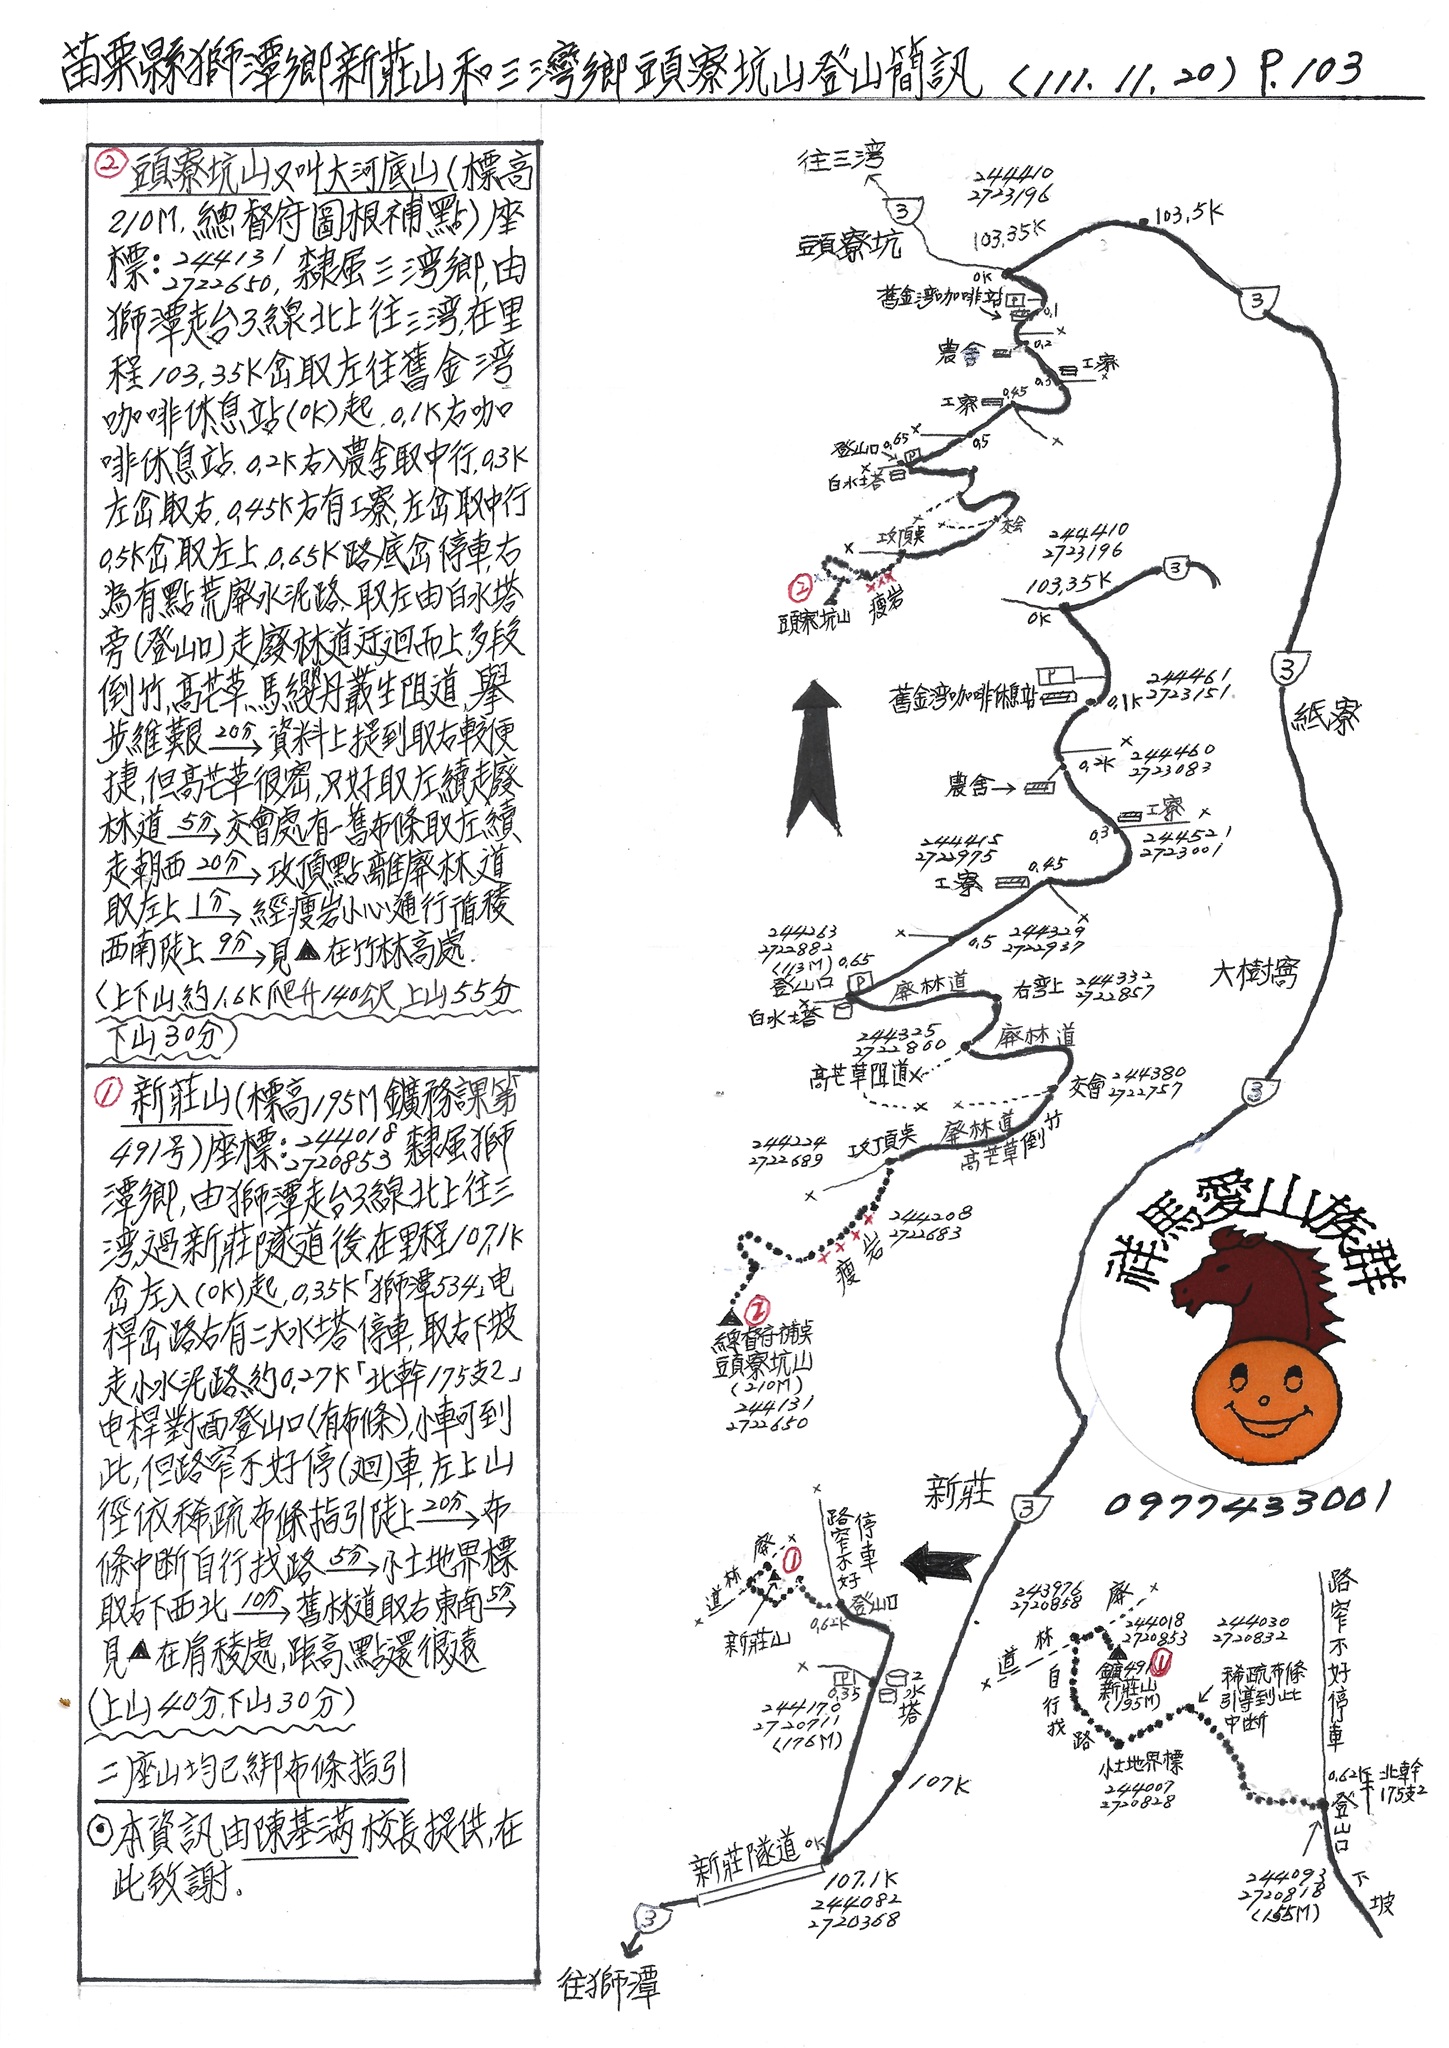 苗栗縣獅潭鄉新莊山和三灣鄉頭寮坑山登山簡訊 (111.11.20) P.103
② 頭寮坑山又叫大河底山(標高
210M,總督府圖根補點)座
標:244131
2722650, 隸屬三湾鄉,由
獅潭走台3線北上往三湾,在里
程103.35K岔取左往舊金湾
咖啡休息站(0K)起,0.1K右咖
啡休息站,0.2K右入農舍取中行,0.3K
左岔取右,0.45K右有工寮,左岔取中行
0.5K岔取左上,0.65K路底岔停車,右
為有點荒廢水泥路,取左由白水塔
旁(登山口)走廢林道迂迴而上,多段
倒竹,高芒草,馬纓丹叢生阻道,舉
步維艱 20分→資料上提到取右較便
捷,但高芒草很密,只好取左續走廢
林道 5分→交會處有一舊布條取左續
走朝西 20分→攻頂點離廢林道
取左上 1分→經瘦岩小心通行循稜
西南陡上 9分→見▲在竹林高處.
(上下山約1.6K爬升140公尺,上山55分
下山30分)
① 新莊山(標高195M鑛務課第
491号)座標:244018
2720853 隸屬獅
潭鄉,由獅潭走台3線北上往三
湾,過新莊隧道後,在里程107.1K
岔左入(0K)起,0.35K「獅潭534」电
桿岔路右有二大水塔停車,取右下坡
走小水泥路,約0.27K「北幹175支2」
电桿對面登山口(有布條),小車可到
此,但路窄不好停(迴)車,左上山
徑依稀疏布條指引陡上 20分→布
條中断自行找路 5分→小土地界標
取右下西北 10分→舊林道取右東南 5分→
見▲在肩稜處,距高點還很遠
(上山40分,下山30分)
二座山均已綁布條指引
⊙本資訊由陳基滿校長提供,在
此致謝.
往三湾
3
頭寮坑
244410
2723196
103.35K
0K
103.5K
3
舊金湾咖啡站
P
0.1
x
0.2
農舍
工寮
0.3
x
工寮
0.45
x
x
0.5
登山口 0.65
x
P
白水塔
交会
x
x
攻頂点
x
x x x
瘦岩
②
頭寮坑山
244410
2723196
103.35K
3
0K
P
舊金湾咖啡休息站
0.1K
244461
2723151
x
0.2K
244460
2723083
農舍→
工寮
x
0.3
244521
2723001
244415
2722975
工寮
0.45
x
x
0.5
244329
2722937
244263
2722882
(113M) 0.65
登山口
P
白水塔
廢林道
右彎上 244332
2722857
244325
2722860
廢林道
高芒草阻道x
交會 244380
2722757
x
x
廢林道
高芒草倒竹
244224
2722689
攻頂点
x
244208
2722683
x x x x
瘦岩
②
總督府補点
頭寮坑山
(210M)
244131
2722650
3
紙寮
大樹窩
3
祥馬愛山族群
0977433001
新莊
3
x
停車
路窄不好
登山口
0.62K
x
廢
林
道
x
①
新莊山
x
P
0.35
2水塔
244170
2720711
(176M)
107K
0K
新莊隧道
107.1K
244082
2720368
3
往獅潭
243976
2720858
x
廢
林
道
x
244018
2720853
鑛491
新莊山
(195M)
①
244030
2720832
稀疏布條
引導到此
中断
自行找路
小土地界標
244007
2720828
路窄不好停車
0.62K
北幹
175支2
登山口
244093
2720818
(155M)
下坡